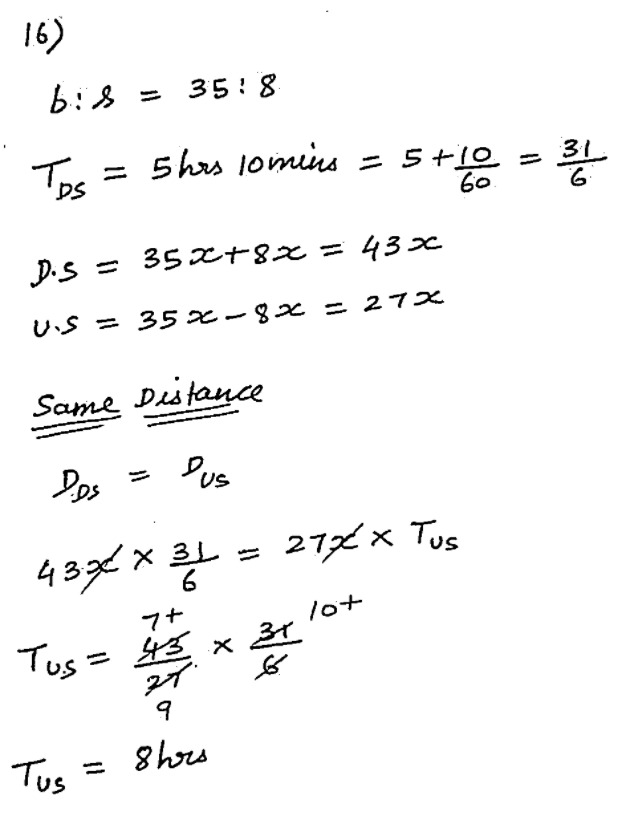 16)
b:s = 35:8
T_DS = 5hrs 10mins = 5 + 10/60 = 31/6
D.S = 35x+8x = 43x
U.S = 35x-8x = 27x
Same Distance
D_DS = D_US
43x × 31/6 = 27x × T_US
7+ 10+
T_US = 43/27 × 31/6
9
T_US = 8hrs